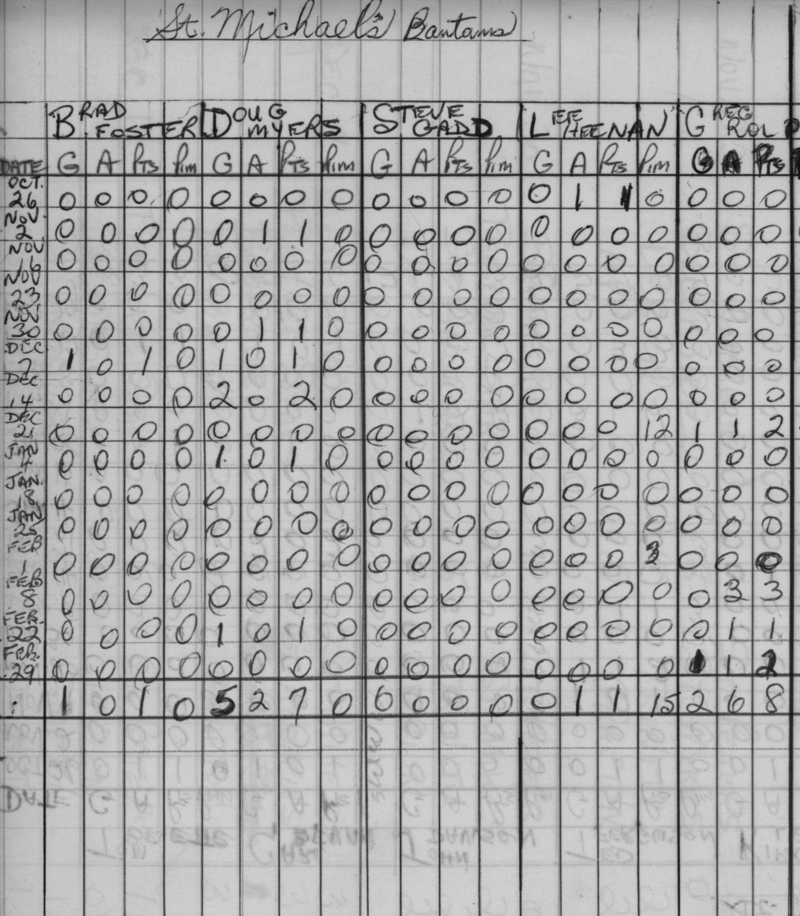 St. Michael's Bantams
BRAD FOSTER DOUG MYERS STEVE GADD LEE HEENAN GREG ROL
DATE G A Pts Pim G A Pts Pim G A Pts Pim G A Pts Pim G A Pts
OCT. 26 0 0 0 0 0 0 0 0 0 0 0 0 0 1 1 0 0 0 0
NOV. 2 0 0 0 0 0 1 1 0 0 0 0 0 0 0 0 0 0 0 0
NOV 16 0 0 0 0 0 0 0 0 0 0 0 0 0 0 0 0 0 0 0
NOV 23 0 0 0 0 0 0 0 0 0 0 0 0 0 0 0 0 0 0 0
NOV 30 0 0 0 0 0 1 1 0 0 0 0 0 0 0 0 0 0 0 0
DEC 7 1 0 1 0 1 0 1 0 0 0 0 0 0 0 0 0 0 0 0
DEC 14 0 0 0 0 2 0 2 0 0 0 0 0 0 0 0 0 0 0 0
DEC 21 0 0 0 0 0 0 0 0 0 0 0 0 0 0 0 12 1 1 2
JAN 4 0 0 0 0 1 0 1 0 0 0 0 0 0 0 0 0 0 0 0
JAN. 18 0 0 0 0 0 0 0 0 0 0 0 0 0 0 0 0 0 0 0
JAN 25 0 0 0 0 0 0 0 0 0 0 0 0 0 0 0 0 0 0 0
FEB 1 0 0 0 0 0 0 0 0 0 0 0 0 0 0 0 3 0 0 0
FEB 8 0 0 0 0 0 0 0 0 0 0 0 0 0 0 0 0 0 3 3
FEB. 22 0 0 0 0 1 0 1 0 0 0 0 0 0 0 0 0 0 1 1
Feb. 29 0 0 0 0 0 0 0 0 0 0 0 0 0 0 0 0 1 1 2
1 0 1 0 5 2 7 0 0 0 0 0 0 1 1 15 2 6 8